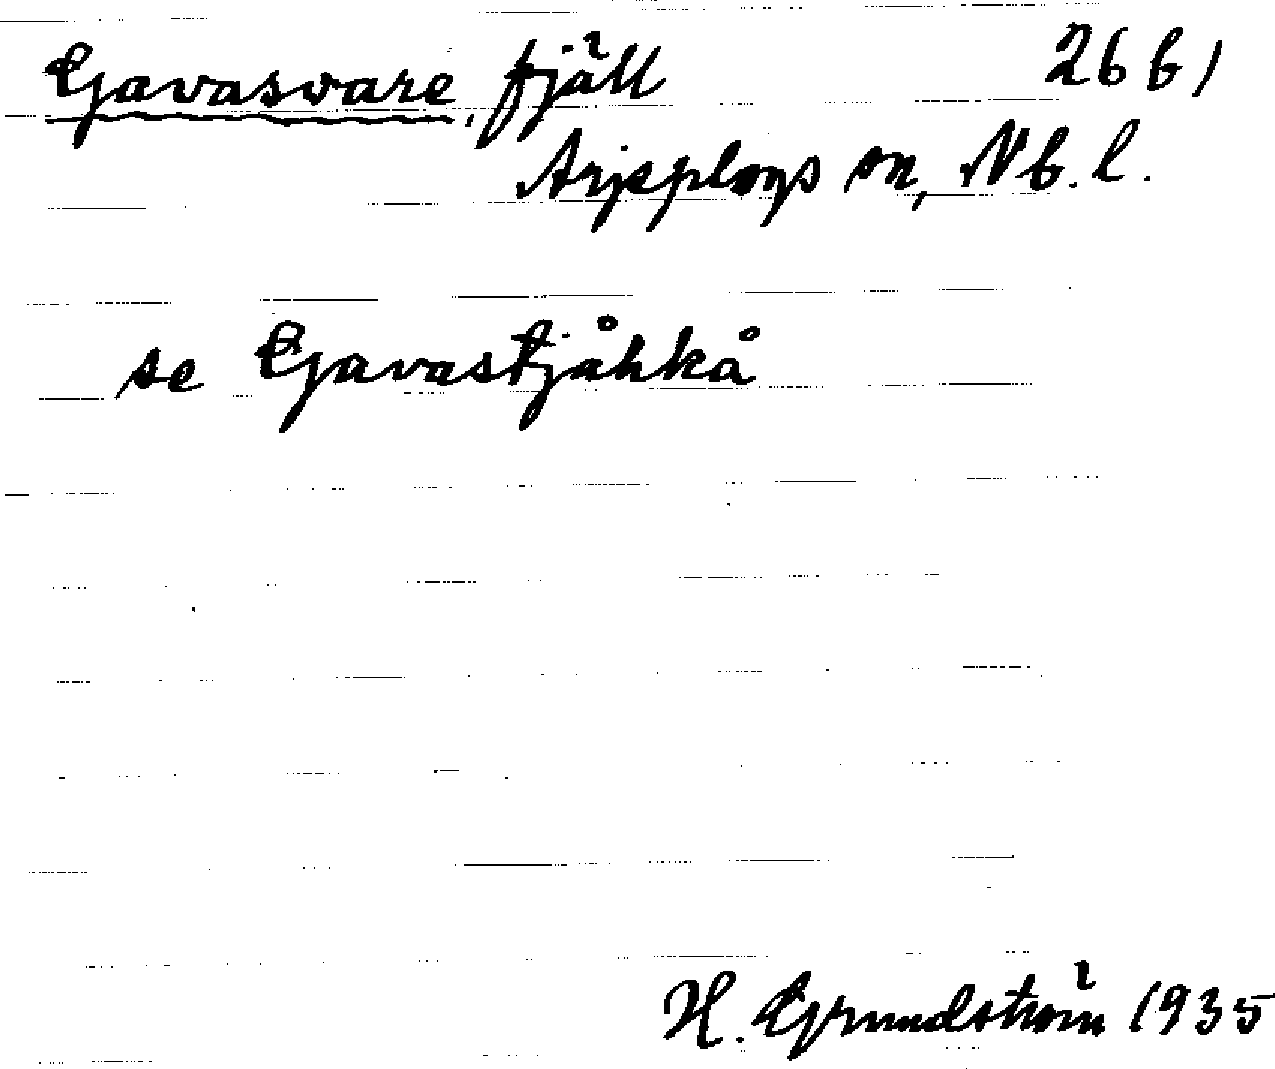 Gavasvare, fjäll 26 b 1
Arjeplogs sn, Nb. l.
se Gavastjåhkå
H. Grundström 1935